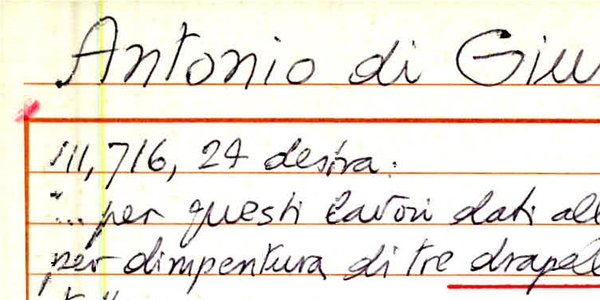 Antonio di Giu
111, 716, 24 desira:
"... per questi lavori dati all
per dimpentura di tre drapel